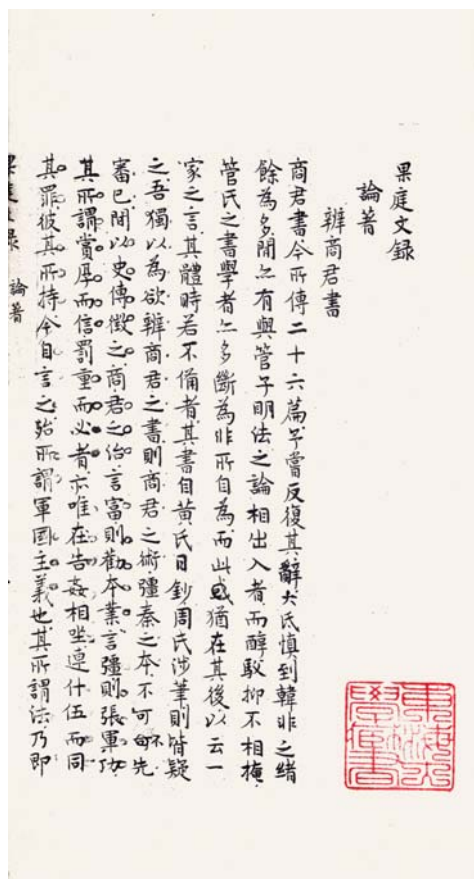 果庭文録
論著
辨商君書
商君書今所傳二十六篇予嘗反復其辭大氐慎到韓非之緒
餘為多閒亦有與管子明法之論相出入者而醇駁抑不相掩
管氏之書學者亦多斷為非所自為而此或猶在其後以云一
家之言其體時若不備者其書自黃氏日鈔周氏涉筆則皆疑
之吾獨以為欲辨商君之書則商君之術彊秦之本不可不先
審已間以史傳徵之商君之治言富則勸本業言彊則張軍功
其所謂賞厚而信罰重而必者亦唯在告姦相坐連什伍而同
其罪彼其所持今自言之殆所謂軍國主義也其所謂法乃即
果庭文録 論著
東海大學圖書